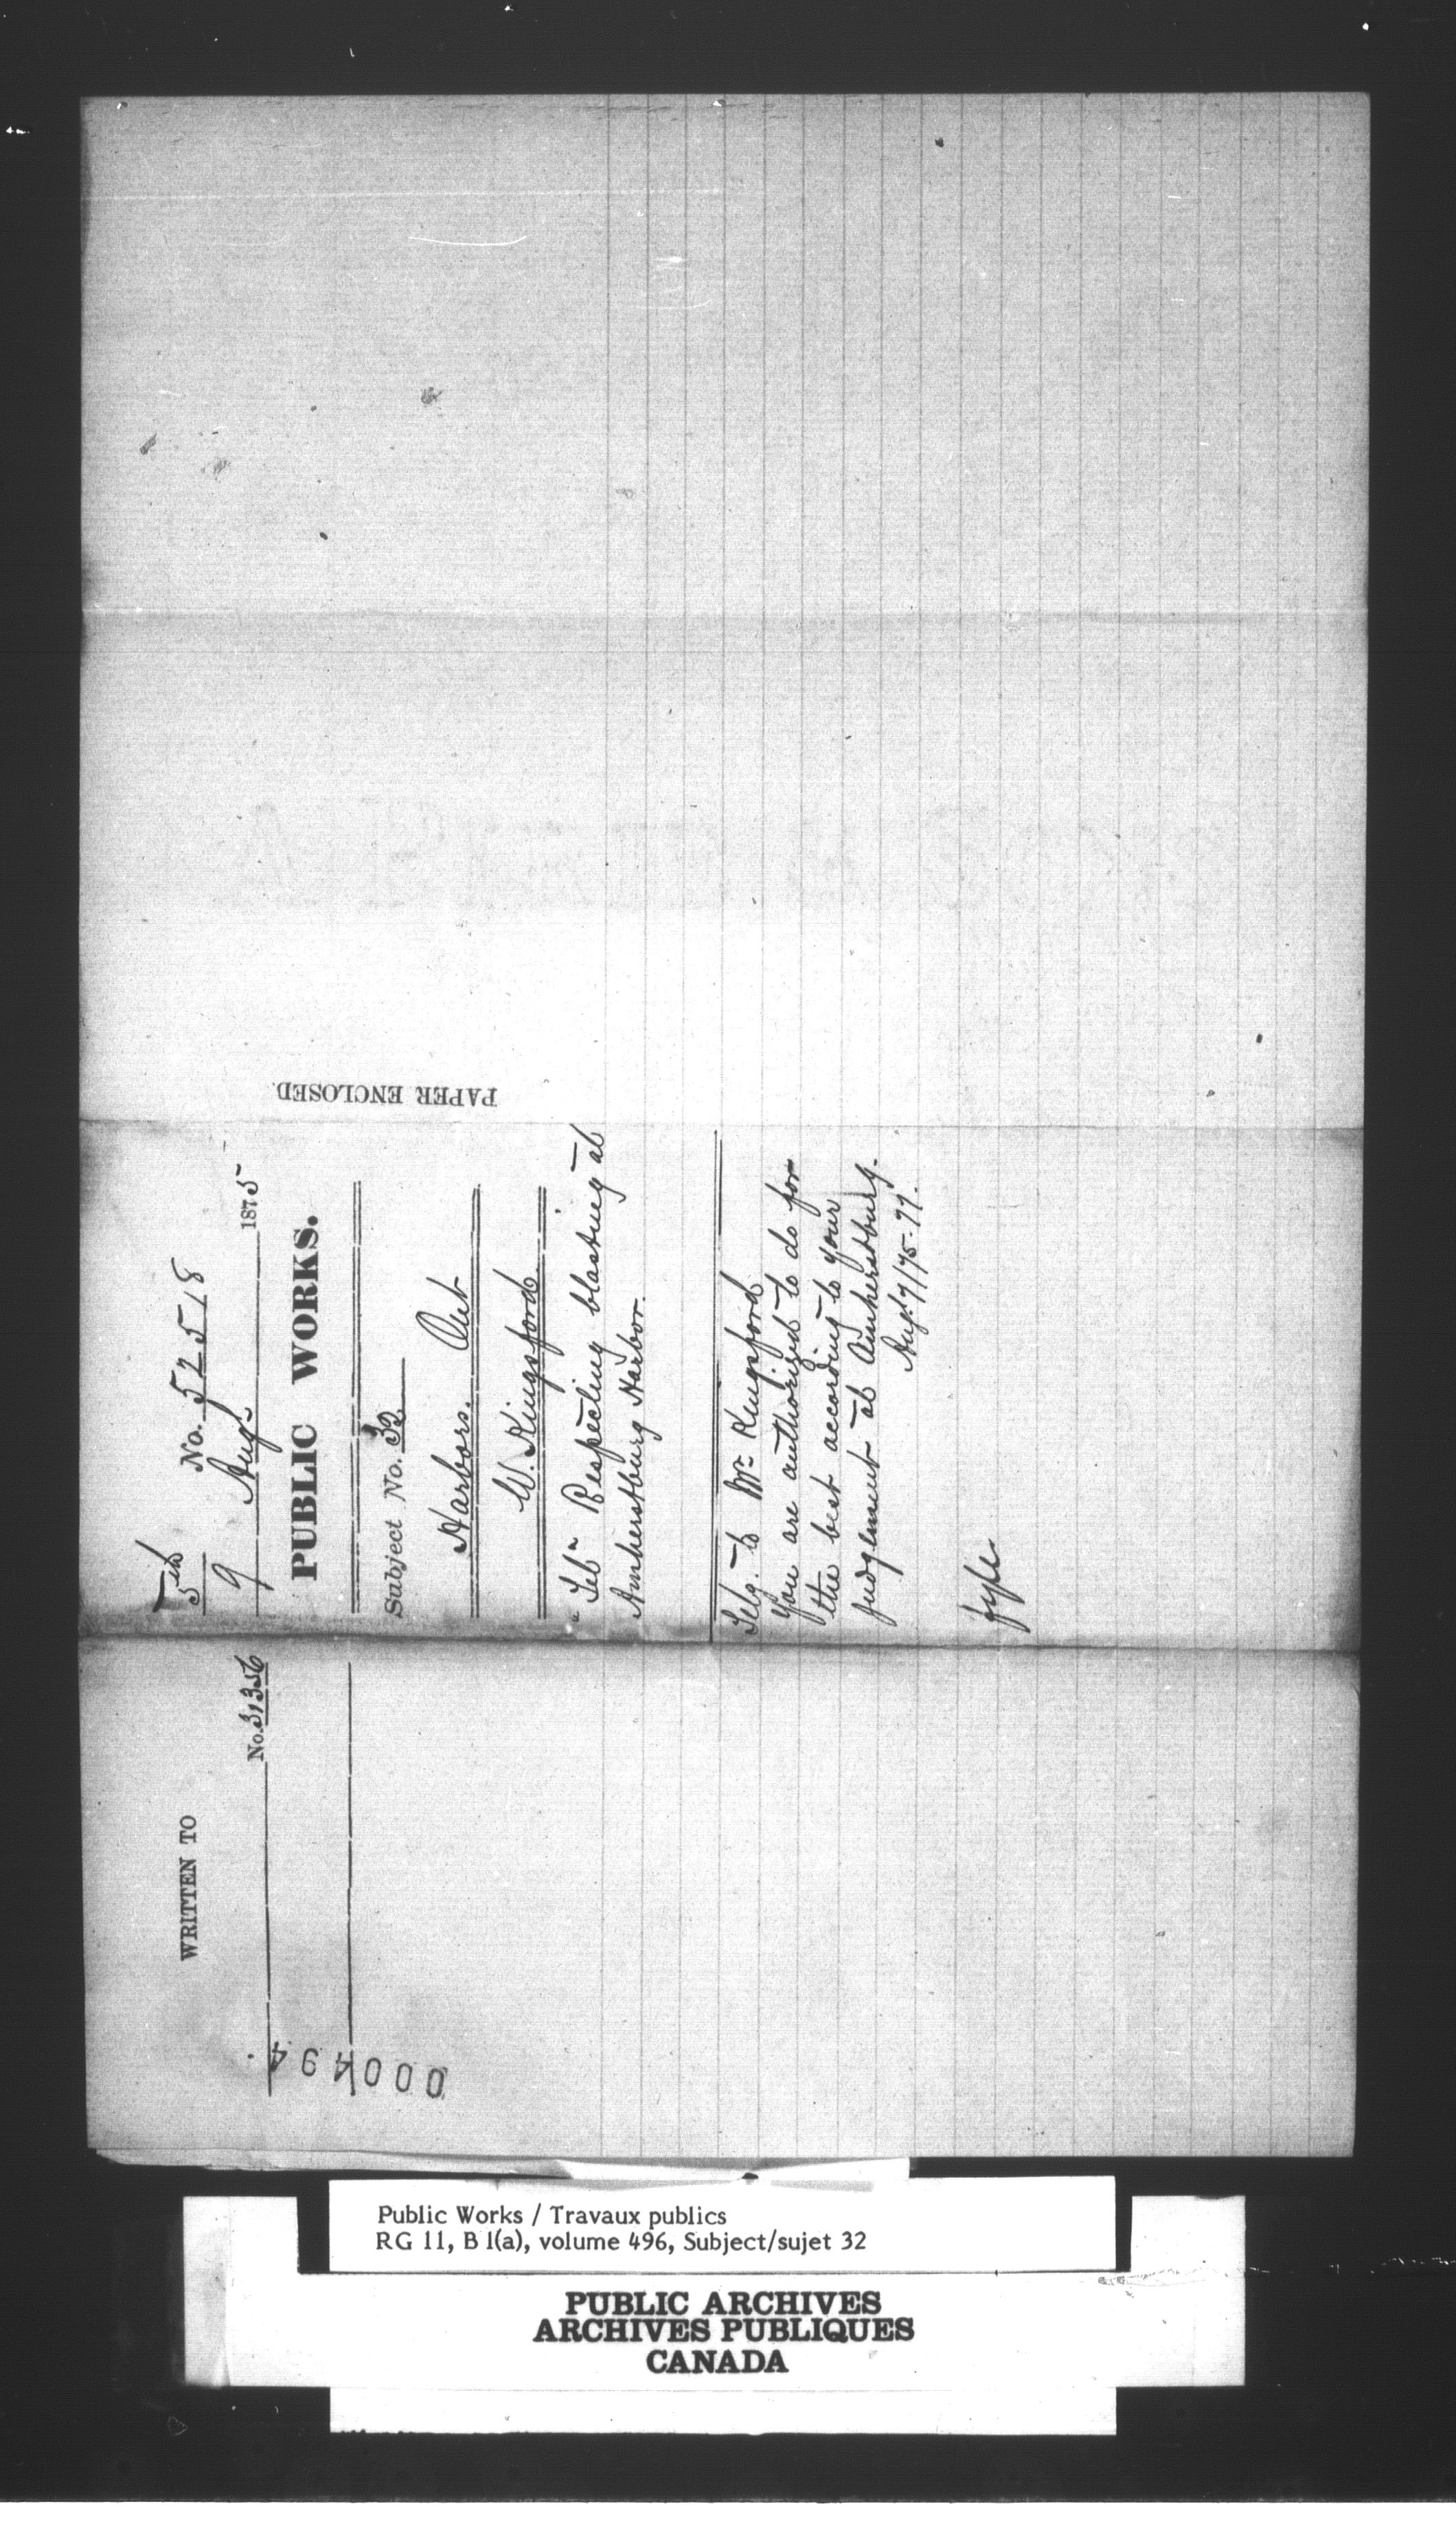 5th
5 No. 52518
9 Augt 1875
PUBLIC WORKS.
Subject No. 32
Harbors. Ont
W. Kingsford
"Teln Respecting blasting at
Amherstburg Harbor.
Telg. to Mr Kingsford
You are authorized to do for
the best according to your
judgement at Amherstburg.
Aug. 9/75.
fyle
PAPER ENCLOSED.
WRITTEN TO
No. 31356
000494
Public Works / Travaux publics
RG 11, B 1(a), volume 496, Subject/sujet 32
PUBLIC ARCHIVES
ARCHIVES PUBLIQUES
CANADA